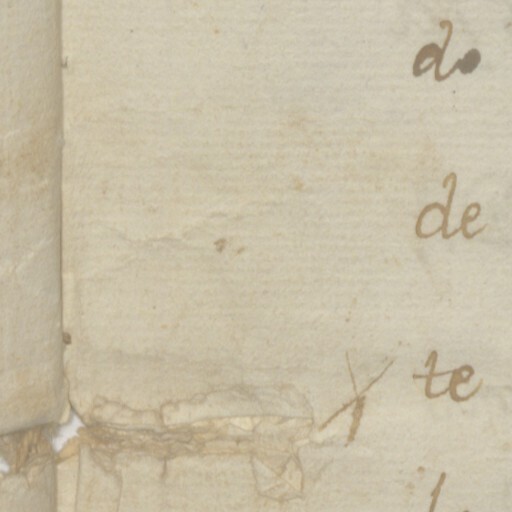 do
de
te